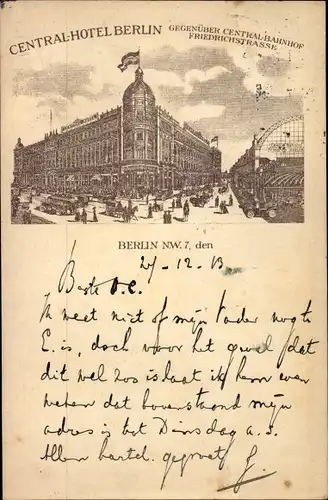 CENTRAL-HOTEL BERLIN GEGENÜBER CENTRAL-BAHNHOF
FRIEDRICHSTRASSE
BERLIN N.W. 7, den
27-12-13
Beste O.C.
Ik weet niet of mijn vader nog te
E. is, doch voor het geval dat
dit wel zoo is laat ik hem even
weten dat bovenstaand mijn
adres is tot Dinsdag a.s.
Allen hartel. gegroet